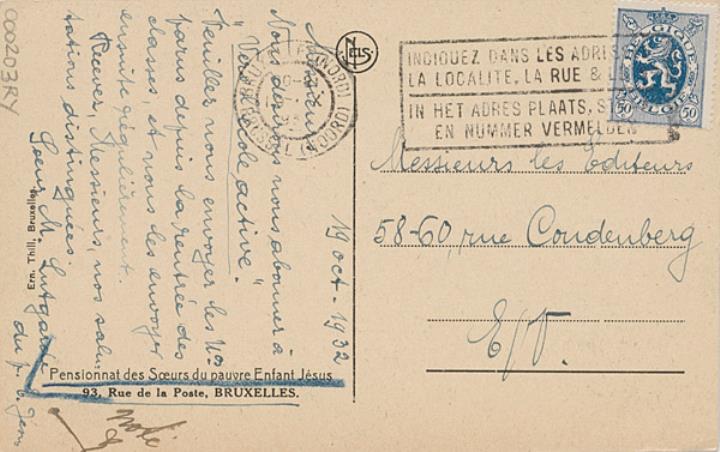 19 oct. 1932
Messieurs,
Nous désirons nous abonner à
"Vers l'école active".
Veuillez nous envoyer les Nos
parus depuis la rentrée des
classes, et nous les envoyer
ensuite régulièrement.
Recevez, Messieurs, nos salu-
tations distinguées.
Sœur M. Lutgarde
du p. E. Jésus
Pensionnat des Sœurs du pauvre Enfant Jésus
93, Rue de la Poste, BRUXELLES.
noté
Ern. Thill, Bruxelles.
000203RY
NELS
(NORD)
BRUSSEL (NOORD)
INDIQUEZ DANS LES ADRES
LA LOCALITE, LA RUE &
IN HET ADRES PLAATS, ST
EN NUMMER VERMELDEN
BELGIQUE
BELGIË
50 50
Messieurs les Editeurs
58-60, rue Coudenberg
E/V.